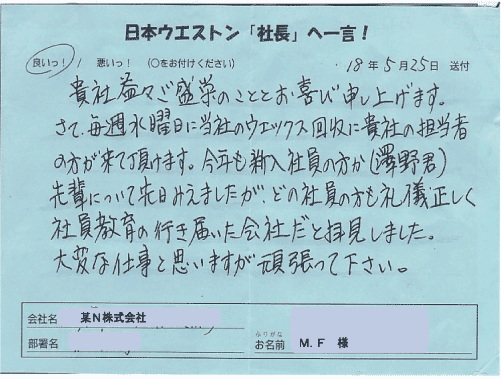 日本ウエストン「社長」へ一言！
良いっ！ / 悪いっ！ (○をお付けください)
18年5月25日 送付
貴社益々ご盛栄のこととお喜び申し上げます。
さて、毎週水曜日に当社のウエックス回収に貴社の担当者
の方が来て頂けます。今年も新入社員の方が(澤野君)
先輩について来日みえましたが、どの社員の方も礼儀正しく
社員教育の行き届いた会社だと拝見しました。
大変な仕事と思いますが頑張って下さい。
会社名 某N株式会社
部署名
ふりがな
お名前 M.F 様